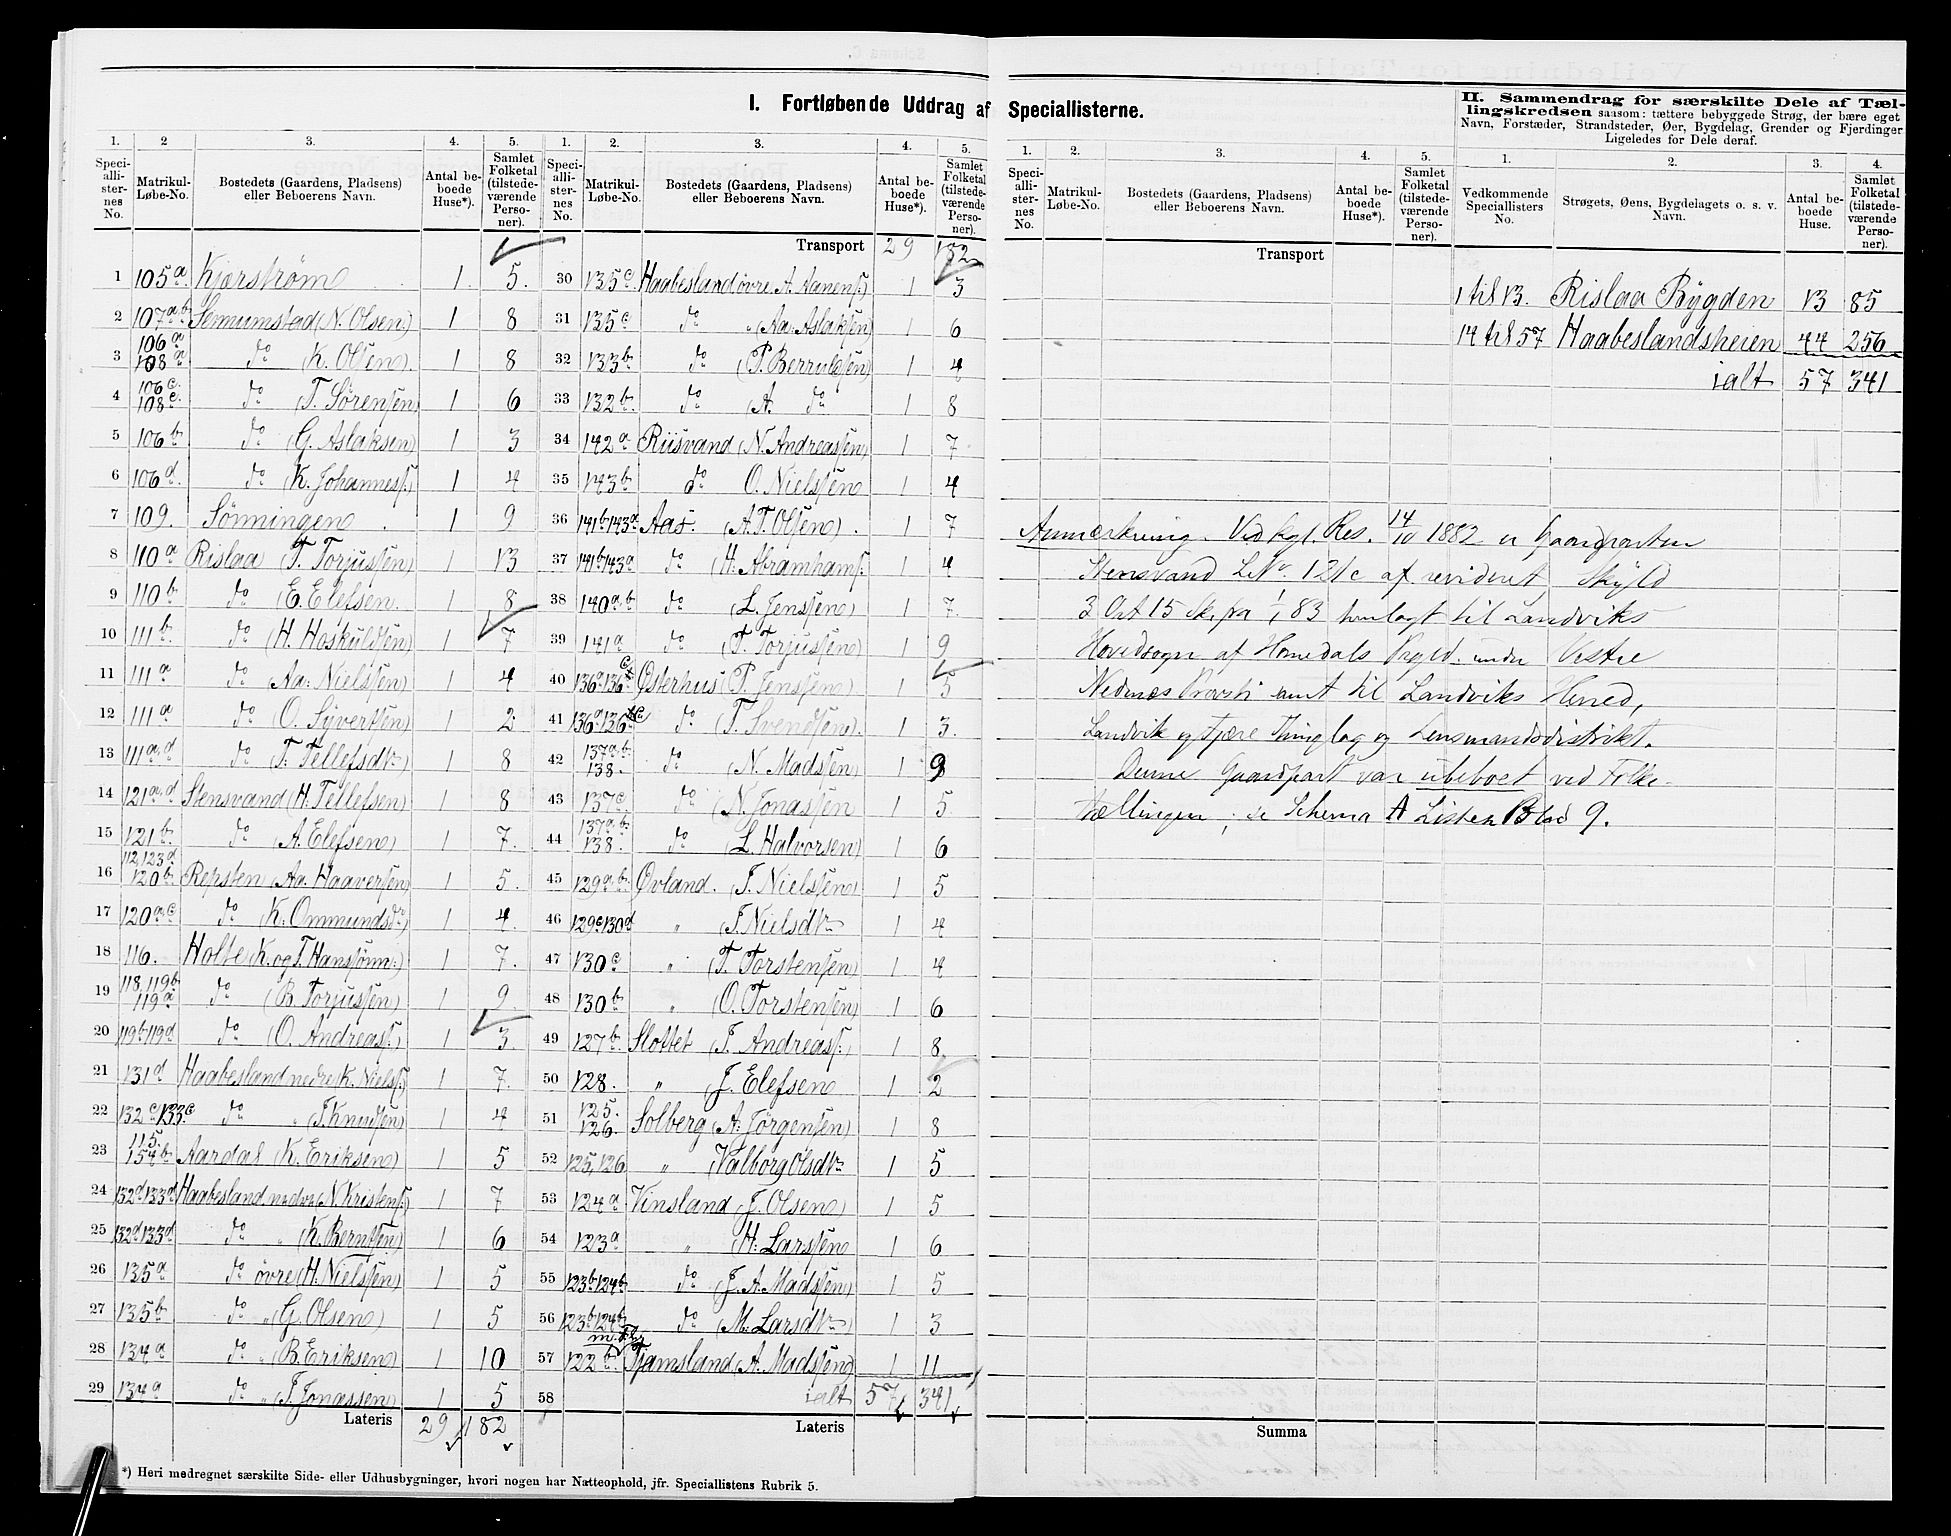 I. Fortløbende Uddrag af Speciallisterne.
II. Sammendrag for særskilte Dele af Tæl-
lingskredsen saasom: tættere bebyggede Strøg, der bære eget
Navn, Forstæder, Strandsteder, Øer, Bygdelag, Grender og Fjerdinger
Ligeledes for Dele deraf.
1. 2 3. 4. 5.
Speci-alli-ster-nes No. Matrikul-Løbe-No. Bostedets (Gaardens, Pladsens) eller Beboerens Navn. Antal be-boede Huse*). Samlet Folketal (tilstede-værende Perso-ner).
1 105a. Kjørstrøm 1. 5.
2 107a,b Sennumstad (N. Olsen) 1 8
3 106a 108a do K. Olsen) 1 8
4 106c. 108c. do (T. Sørensen) 1 6
5 106b do (G. Aslaksen) 1 3
6 106d. do (K. Johanness:) 1 4
7 109. Sønningen 1 9
8 110a Rislaa (T. Torjussen) 1 13
9 110b do (E. Elefsen. 1 8
10 111b. do (H. Hoskuldsen) 1 7
11 111a do (Aa: Nielssen) 1 4
12 111a do (O. Syvertsen) 1 2
13 111a,d do (T. Tellefsdtr) 1 8
14 121a,d Stensvand (H. Tellefsen) 1 8
15 121b. do (A. Elefsen) 1 7.
16 112, 123d 120b Repsten (Aa. Haaversen) 1 5.
17 120a,c do (K. Ommundsdr) 1 4.
18 116. Holte (K. og T. Hanssønn:) 1 7.
19 118, 119b 119a do (B. Torjussen) 1 9
20 119b 119d do (O. Andreass:) 1 3.
21 131d Haabesland nedre (K. Niels:) 1 7.
22 132c 133c do " (T. Knudsen) 1 4
23 115. 154b Aardal (K. Eriksen) 1 5
24 132d 133d Haabesland nedre (N. Kristens:) 1 7
25 132d 133d do " (K. Berntsen) 1 6
26 135a do øvre (H. Nielssen) 1 5
27 135b do " (G. Olsen) 1 5
28 134a do " (B. Eriksen) 1 10
29 134a do " (T. Jonassen) 1 5
Lateris 29 182
1. 2. 3. 4. 5.
Speci-alli-ster-nes No. Matrikul-Løbe-No. Bostedets (Gaardens, Pladsens) eller Beboerens Navn. Antal be-boede Huse*). Samlet Folketal (tilstede-værende Perso-ner).
Transport 29 182
30 135c. Haabesland øvre (A. Aanens:) 1 3
31 135c do " (Aa: Aslaksen) 1 6
32 133b do (P. Berrulfsen) 1 4
33 132b. do (A. do 1 8
34 142a Riisvand (N. Andreassen) 1 7
35 143b do O. Nielssen 1 4
36 141b 143a Aas. (A. T. Olsen). 1 7
37 141b 143a do (H. Abramhams: 1 4
38 140a,b do (L. Jenssen) 1 7.
39 141a do (T. Torjussen) 1 9
40 136a 136c Østerhus (P. Jenssen) 1 5
41 136a 136c do (T. Svendsen) 1 3.
42 137a,b 138. do (N. Madssen) 1 9
43 137c. do (N. Jonassen 1 5
44 137a,b 138. do (L. Halvorsen) 1 6
45 129a,b Øvland. (T. Nielssen) 1 5
46 129c 130d " (T. Nielsdtr 1 4
47 130c " (T. Torstensen) 1 4
48 130b " (O. Torstensen) 1 6
49 127b. Slottet (T. Andreass:) 1 8.
50 128. " (J. Elefsen) 1 2
51 125. 126. Solberg (A. Jörgensen) 1 8
52 125, 126 " (Valborg Olsdtr 1 5
53 124a Vinsland (J. Olsen) 1 5
54 123a " (H. Larssen 1 6
55 123b 124b do (J. A. Madssen) 1 5
56 123b 124b do (M. Larsdtr) 1 3
57 122b. Tjamsland (A. Madssen) 1 11
58 ialt 57 341
Lateris
*) Heri medregnet særskilte Side- eller Udhusbygninger, hvori nogen har Natteophold, jfr. Speciallistens Rubrik 5.
1. 2. 3. 4. 5.
Speci-alli-ster-nes No. Matrikul-Løbe-No. Bostedets (Gaardens, Pladsens) eller Beboerens Navn. Antal be-boede Huse*). Samlet Folketal (tilstede-værende Perso-ner).
Transport
Anmærkning. Ved kgl. Res. 14/10 1882 er Gaardparten
Stensvand L.No. 121c af revideret Skyld
3 Ort 15 Sk. fra 1/1 83 henlagt til Landviks
Hovedsogn af Homedals Prgld. under Vestre
Nedenæs Provsti samt til Landviks Herred,
Landvik og Fjære Thinglag og Lensmandsdistrikt.
Denne Gaardpart var ubeboet ved Folke-
tællingen, se Schema A Listen Blad 9.
Summa
1. 2. 3. 4.
Vedkommende Speciallisters No. Strøgets, Øens, Bygdelagets o. s. v. Navn. Antal be-boede Huse. Samlet Folketal (tilstede-værende Perso-ner).
1 til 13. Rislaa Bygden 13 85
14 til 57 Haabeslandsheien 44 256
ialt 57 341